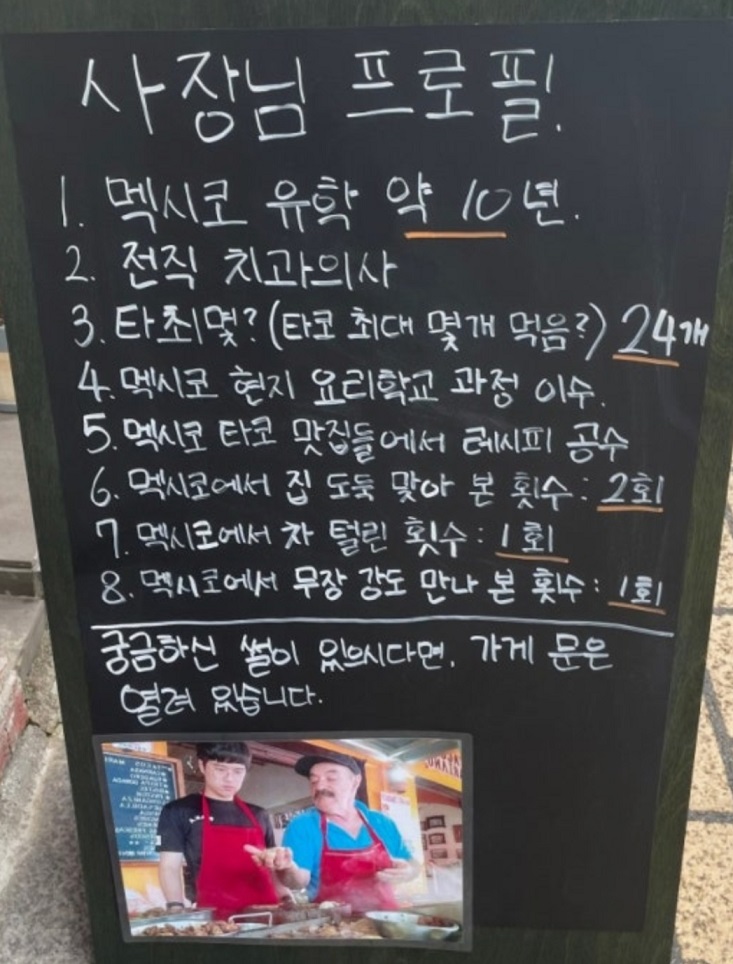 사장님 프로필.
1. 멕시코 유학 약 10년.
2. 전직 치과의사
3. 타최몇? (타코 최대 몇개 먹음?) 24개
4. 멕시코 현지 요리학교 과정 이수.
5. 멕시코 타코 맛집들에서 레시피 공수
6. 멕시코에서 집 도둑 맞아 본 횟수 : 2회
7. 멕시코에서 차 털린 횟수 : 1회
8. 멕시코에서 무장 강도 만나 본 횟수 : 1회
궁금하신 썰이 있으시다면, 가게 문은
열려 있습니다.